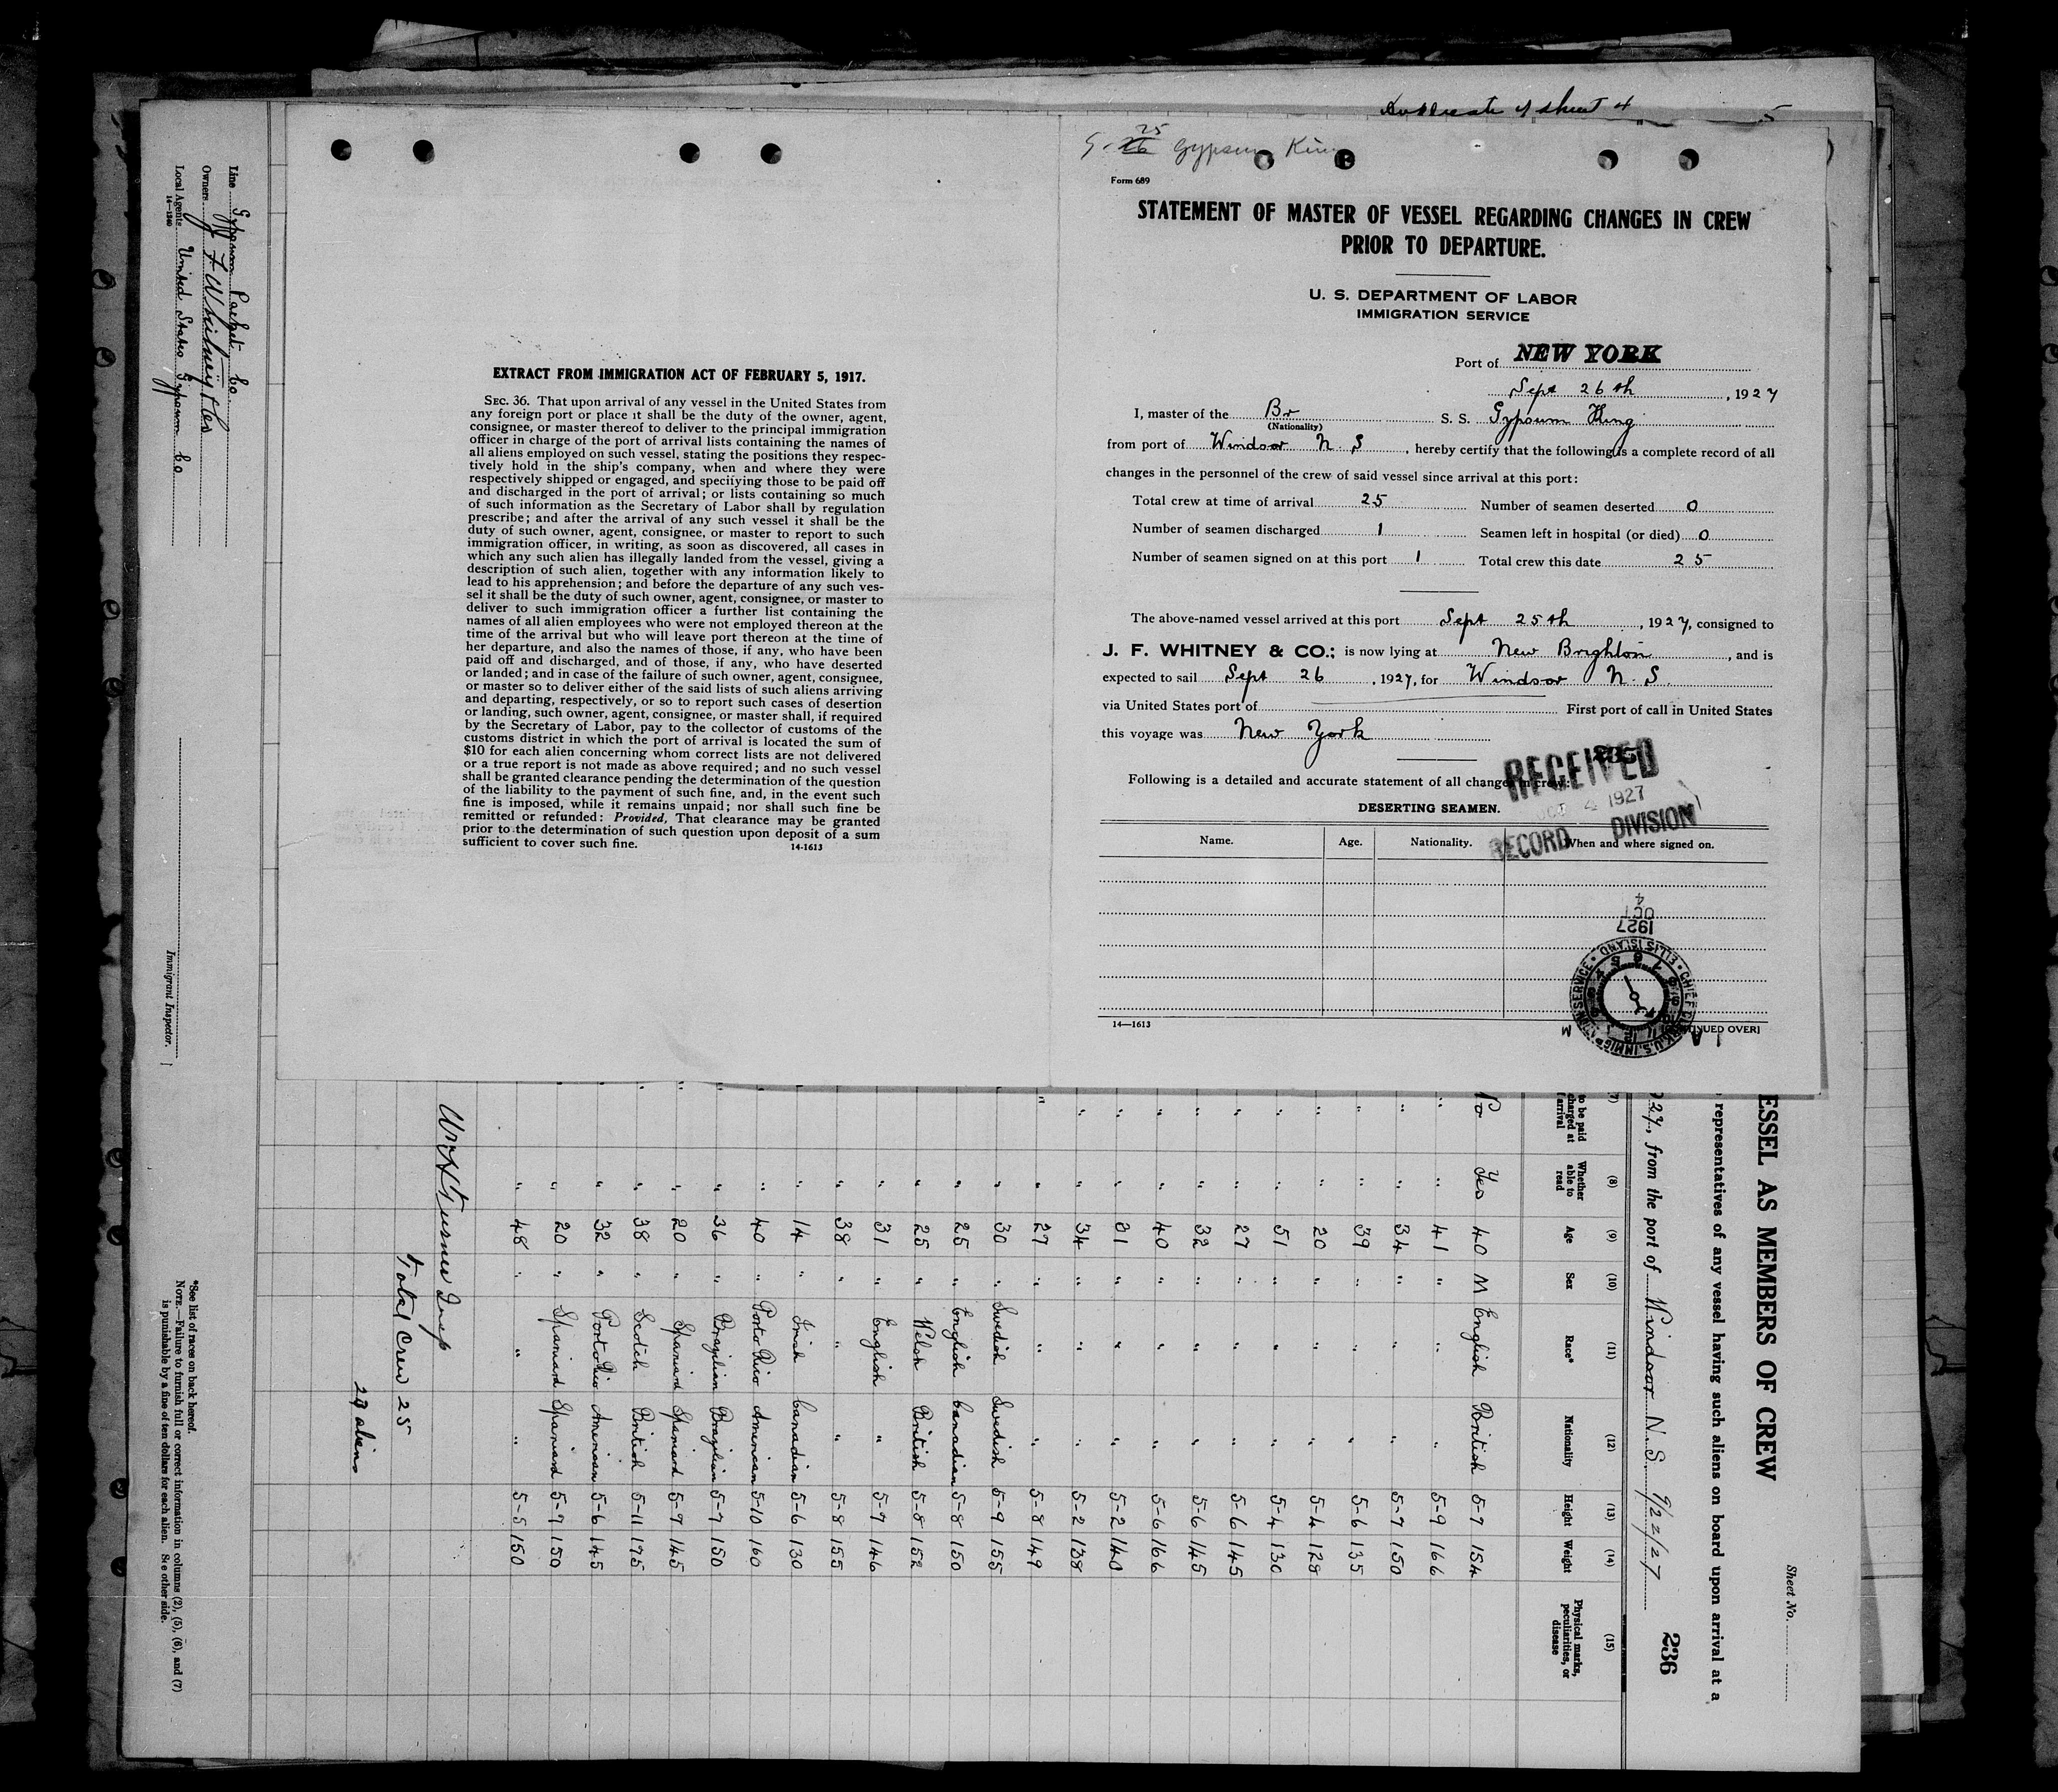 Duplicate of sheet 4
5
9-26 25 Gypsum King
Form 689
STATEMENT OF MASTER OF VESSEL REGARDING CHANGES IN CREW
PRIOR TO DEPARTURE.
U. S. DEPARTMENT OF LABOR
IMMIGRATION SERVICE
Port of NEW YORK
Sept 26th, 1927
I, master of the Br S. S. Gypsum King
(Nationality)
from port of Windsor N. S, hereby certify that the following is a complete record of all
changes in the personnel of the crew of said vessel since arrival at this port:
Total crew at time of arrival 25 Number of seamen deserted 0
Number of seamen discharged 1 Seamen left in hospital (or died) 0
Number of seamen signed on at this port 1 Total crew this date 25
The above-named vessel arrived at this port Sept 25th, 1927, consigned to
J. F. WHITNEY & CO.; is now lying at New Brighton, and is
expected to sail Sept 26, 1927, for Windsor N. S.
via United States port of First port of call in United States
this voyage was New York
Following is a detailed and accurate statement of all changes in crew:
RECEIVED
OCT 4 1927
RECORD DIVISION
DESERTING SEAMEN.
Name. Age. Nationality. When and where signed on.
4
OCT
1927
CHIEF CLERK, U.S. IMMIG'ION SERVICE • ELLIS ISLAND •
14—1613
[CONTINUED OVER]
EXTRACT FROM IMMIGRATION ACT OF FEBRUARY 5, 1917.
SEC. 36. That upon arrival of any vessel in the United States from
any foreign port or place it shall be the duty of the owner, agent,
consignee, or master thereof to deliver to the principal immigration
officer in charge of the port of arrival lists containing the names of
all aliens employed on such vessel, stating the positions they respec-
tively hold in the ship's company, when and where they were
respectively shipped or engaged, and specifying those to be paid off
and discharged in the port of arrival; or lists containing so much
of such information as the Secretary of Labor shall by regulation
prescribe; and after the arrival of any such vessel it shall be the
duty of such owner, agent, consignee, or master to report to such
immigration officer, in writing, as soon as discovered, all cases in
which any such alien has illegally landed from the vessel, giving a
description of such alien, together with any information likely to
lead to his apprehension; and before the departure of any such ves-
sel it shall be the duty of such owner, agent, consignee, or master to
deliver to such immigration officer a further list containing the
names of all alien employees who were not employed thereon at the
time of the arrival but who will leave port thereon at the time of
her departure, and also the names of those, if any, who have been
paid off and discharged, and of those, if any, who have deserted
or landed; and in case of the failure of such owner, agent, consignee,
or master so to deliver either of the said lists of such aliens arriving
and departing, respectively, or so to report such cases of desertion
or landing, such owner, agent, consignee, or master shall, if required
by the Secretary of Labor, pay to the collector of customs of the
customs district in which the port of arrival is located the sum of
$10 for each alien concerning whom correct lists are not delivered
or a true report is not made as above required; and no such vessel
shall be granted clearance pending the determination of the question
of the liability to the payment of such fine, and, in the event such
fine is imposed, while it remains unpaid; nor shall such fine be
remitted or refunded: Provided, That clearance may be granted
prior to the determination of such question upon deposit of a sum
sufficient to cover such fine.
14-1613
Sheet No.
ESSEL AS MEMBERS OF CREW
representatives of any vessel having such aliens on board upon arrival at a
1927, from the port of Windsor N. S. 9/22/27
236
(7) (8) (9) (10) (11) (12) (13) (14) (15)
to be paid charged at arrival Whether able to read Age Sex Race* Nationality Height Weight Physical marks, peculiarities, or disease
No Yes 40 M English British 5-7 154
" " 41 " " " 5-9 166
" " 34 " " " 5-7 150
" " 39 " " " 5-6 135
" " 20 " " " 5-4 128
" " 51 " " " 5-4 130
" " 27 " " " 5-6 145
" " 32 " " " 5-6 145
" " 40 " " " 5-6 166
" " 31 " " " 5-2 140
" " 34 " " " 5-2 138
" " 27 " " " 5-8 149
" 30 " Swedish Swedish 5-9 155
" 25 " English Canadian 5-8 150
" 25 " Welsh British 5-8 152
" 31 " English " 5-7 146
" 38 " " " 5-8 155
" 14 " Irish Canadian 5-6 130
" 40 " Porto Rico American 5-10 160
" 36 " Brazilian Brazilian 5-7 150
" 20 " Spaniard Spaniard 5-7 145
" 38 " Scotch British 5-11 175
" 32 " Porto Rio American 5-6 145
" 20 " Spaniard Spaniard 5-7 150
" 48 " " " 5-5 150
Insp
Total Crew 25
23 aliens
Line Gypsum Packet Co.
Owners J F Whitney & Co
Local Agents United States Gypsum Co
14—1240
Immigrant Inspector.
*See list of races on back hereof.
NOTE.—Failure to furnish full or correct information in columns (2), (5), (6), and (7)
is punishable by a fine of ten dollars for each alien. See other side.